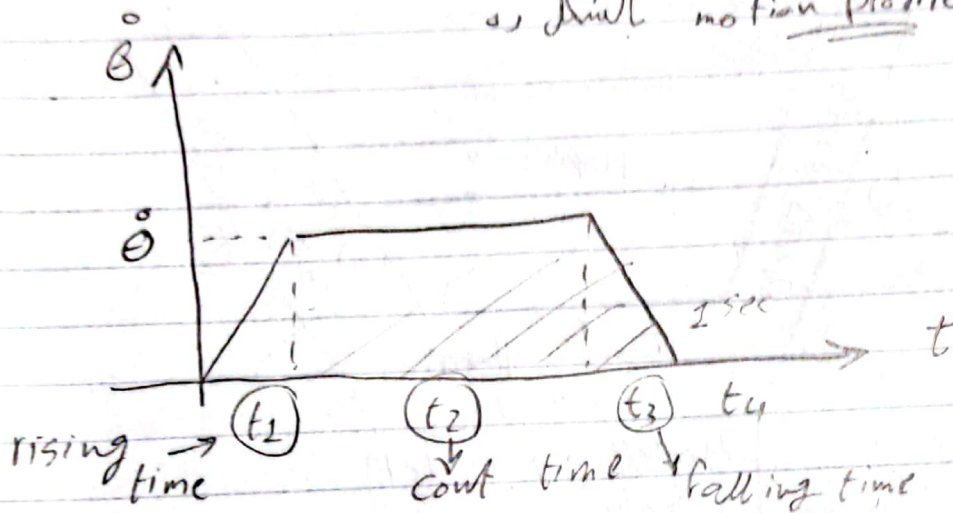 motion profile
θ̇
θ̇
1 sec
t
t1 t2 t3 t4
rising time → cont time falling time